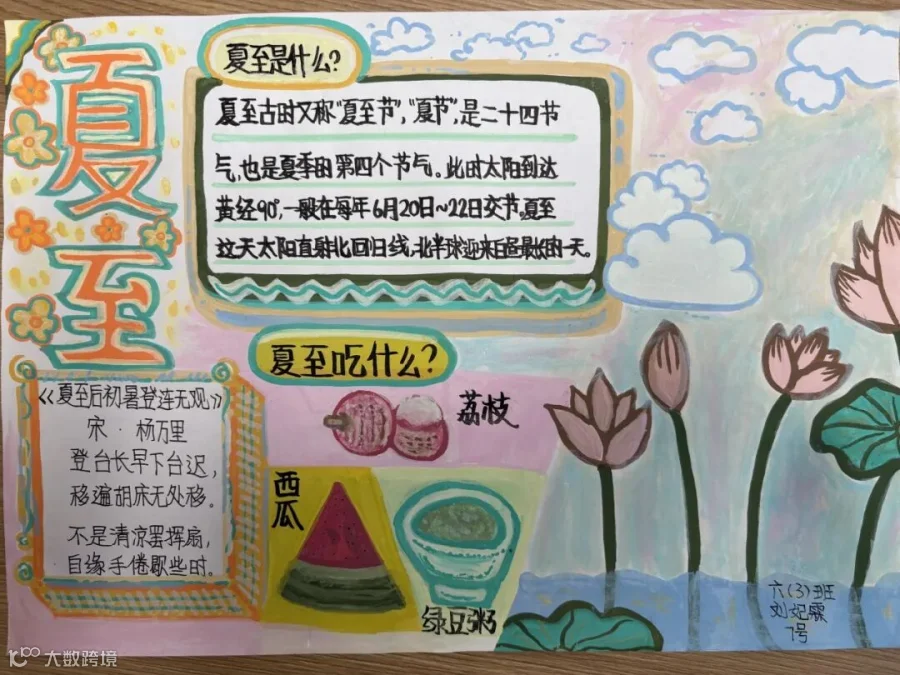 夏至
夏至是什么?
夏至古时又称“夏至节”,“夏节”,是二十四节
气,也是夏季的第四个节气。此时太阳到达
黄经90°,一般在每年6月20日~22日交节,夏至
这天太阳直射北回归线,北半球迎来白昼最长的一天。
夏至吃什么?
荔枝
西瓜
绿豆粥
《夏至后初暑登连天观》
宋·杨万里
登台长早下台迟,
移遍胡床无处移。
不是清凉罢挥扇,
自缘手倦歇些时。
六(3)班
刘妃霖
7号
大数跨境